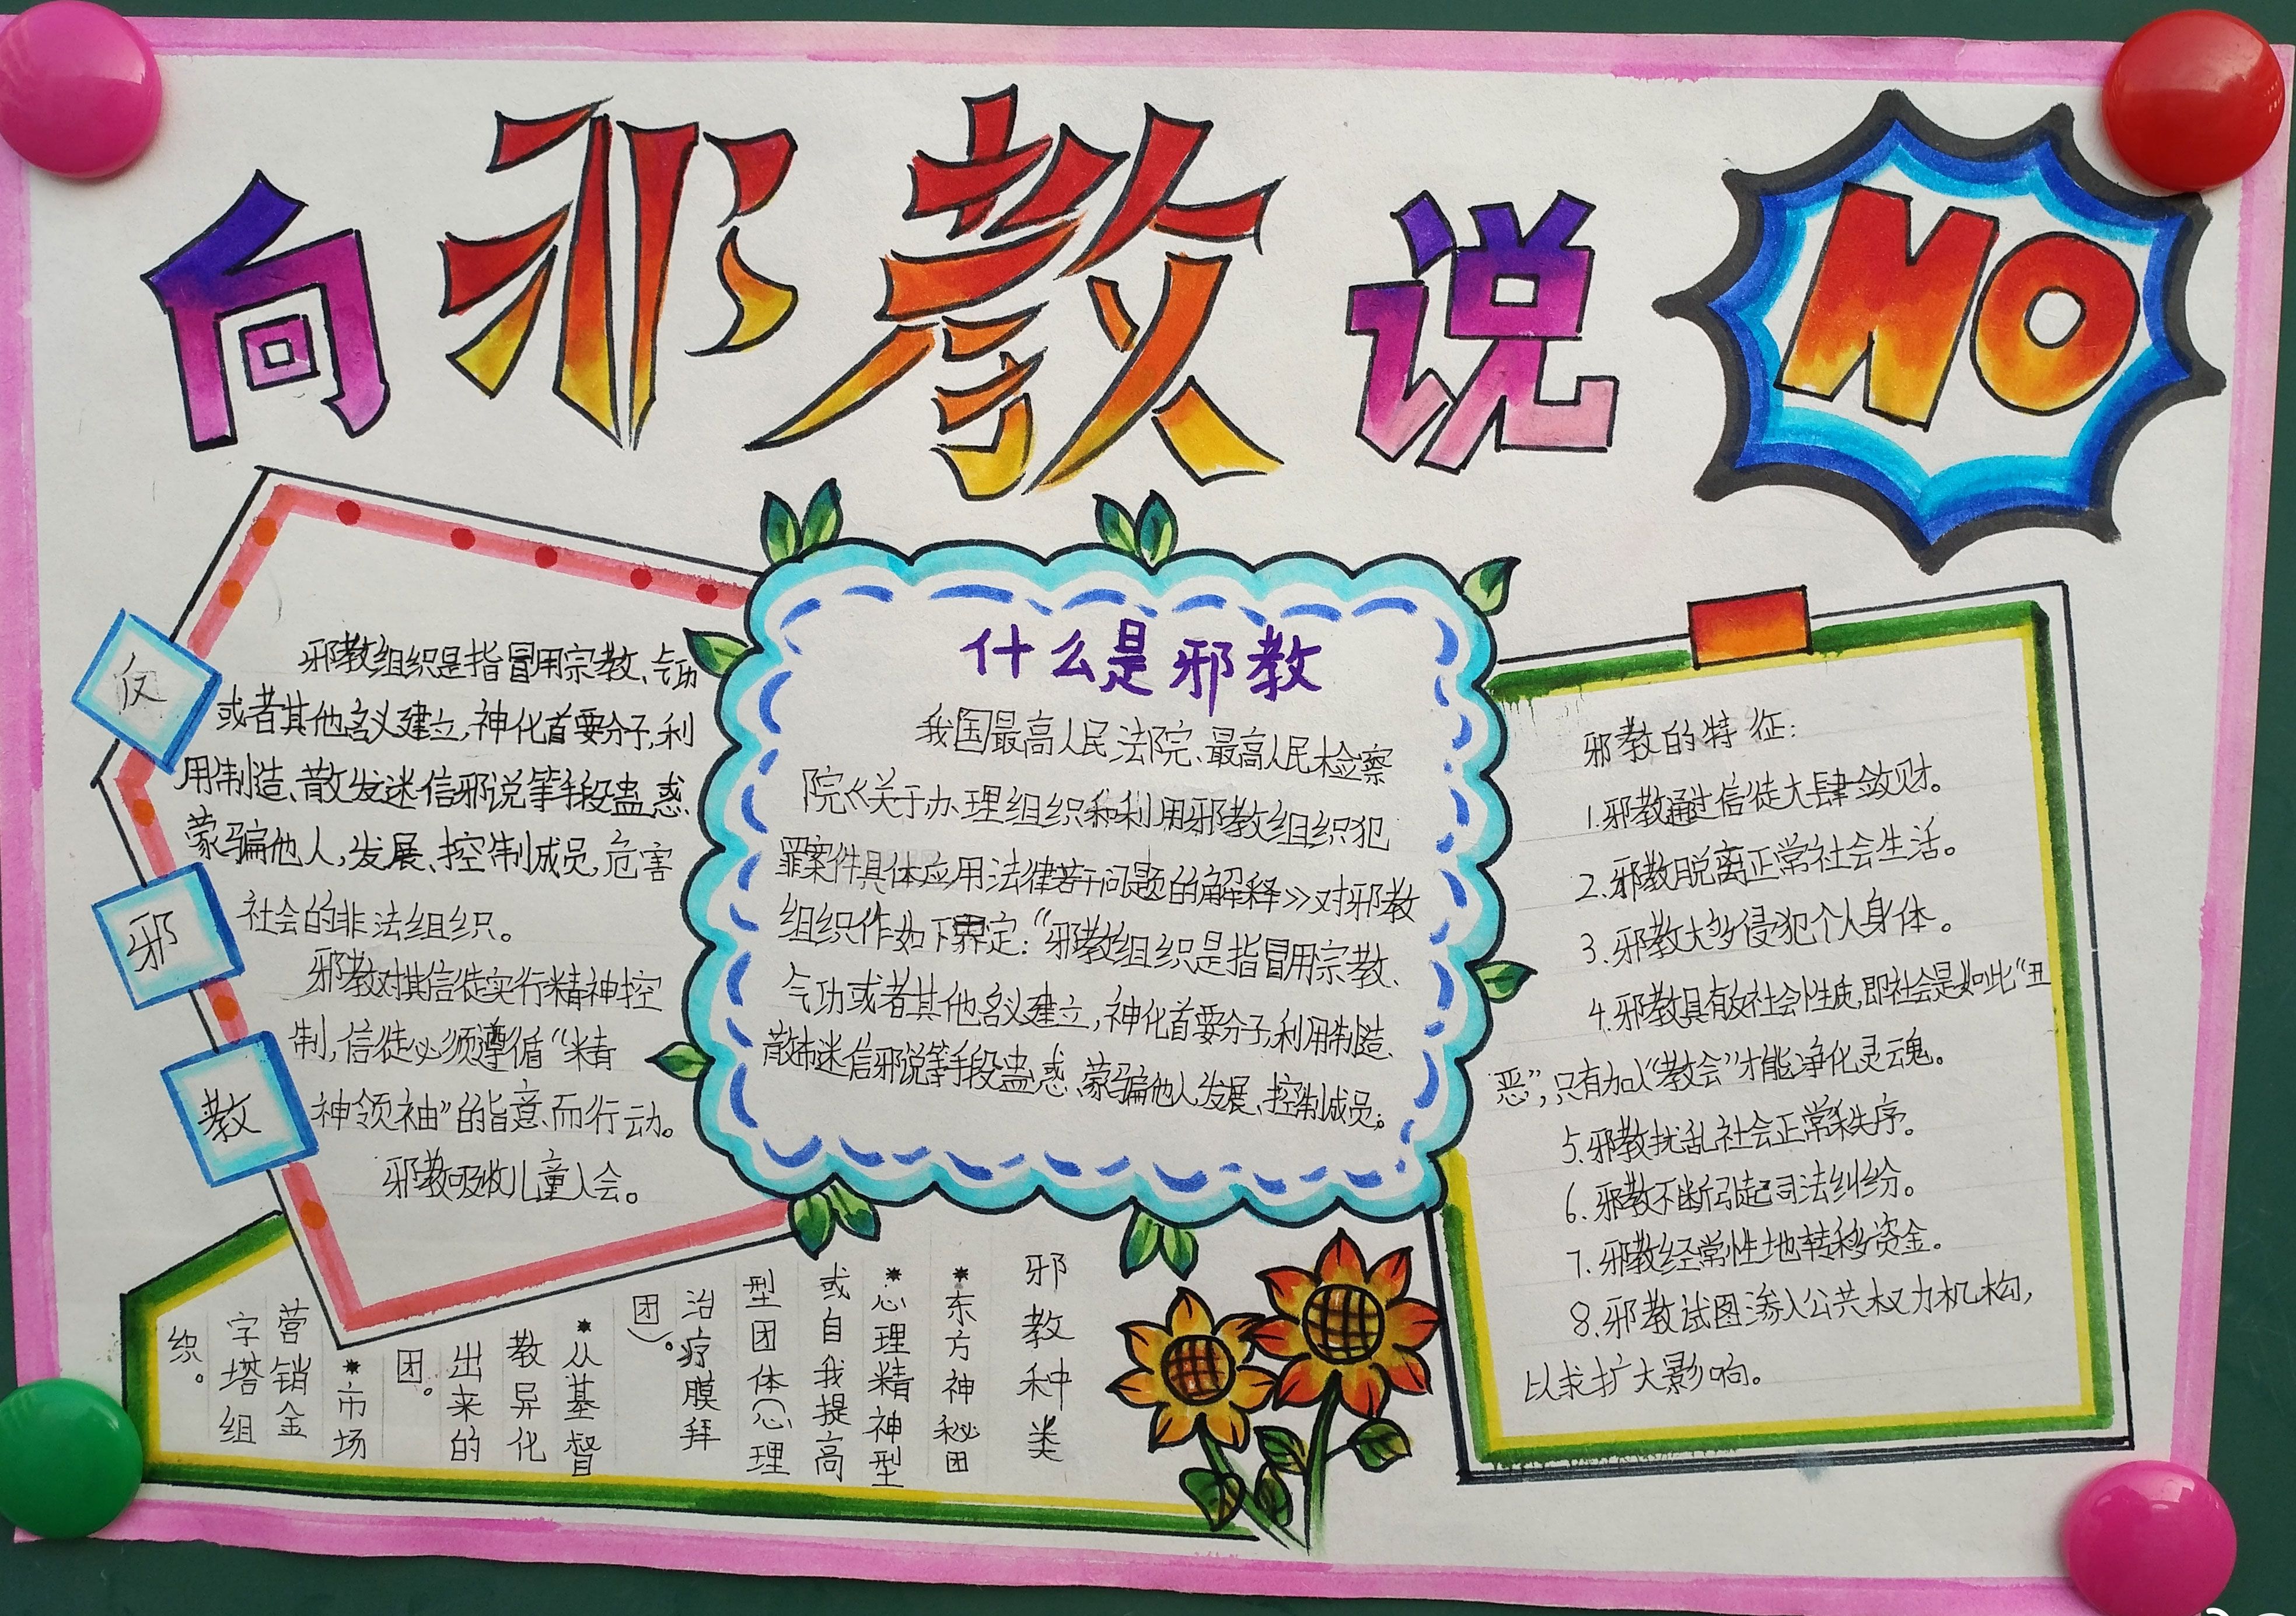 向邪教说NO
反
邪
教
邪教组织是指冒用宗教、气功
或者其他名义建立,神化首要分子,利
用制造、散发迷信邪说等手段蛊惑、
蒙骗他人,发展、控制成员,危害
社会的非法组织。
邪教对其信徒实行精神控
制,信徒必须遵循“精
神领袖”的旨意而行动。
邪教吸收儿童入会。
什么是邪教
我国最高人民法院、最高人民检察
院《关于办理组织和利用邪教组织犯
罪案件具体应用法律若干问题的解释》对邪教
组织作如下界定:“邪教组织是指冒用宗教、
气功或者其他名义建立,神化首要分子,利用制造、
散布迷信邪说等手段蛊惑、蒙骗他人,发展、控制成员;
邪教的特征:
1.邪教通过信徒大肆敛财。
2.邪教脱离正常社会生活。
3.邪教大多侵犯个人身体。
4.邪教具有反社会性质,即社会是如此“丑
恶”,只有加入“教会”才能净化灵魂。
5.邪教扰乱社会正常秩序。
6.邪教不断引起司法纠纷。
7.邪教经常性地转移资金。
8.邪教试图渗入公共权力机构,
以求扩大影响。
邪教种类
*东方神秘团
*心理精神型
或自我提高
型团体(心理
治疗膜拜
团)。
*从基督
教异化
出来的
团。
*市场
营销金
字塔组
织。